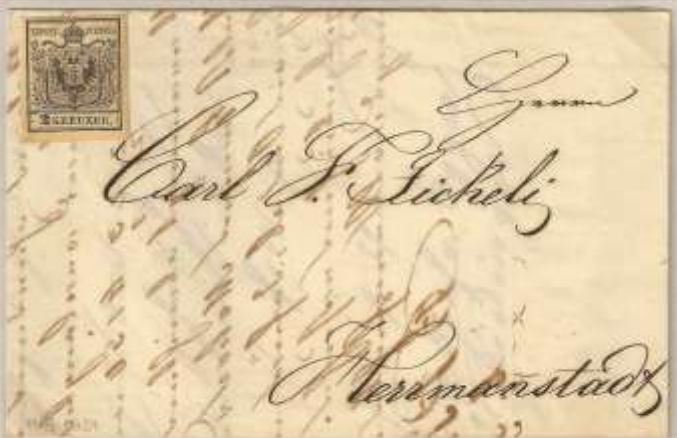 2 KREUZER.
Herrn
Carl F. Jickeli
Herrmañstadt